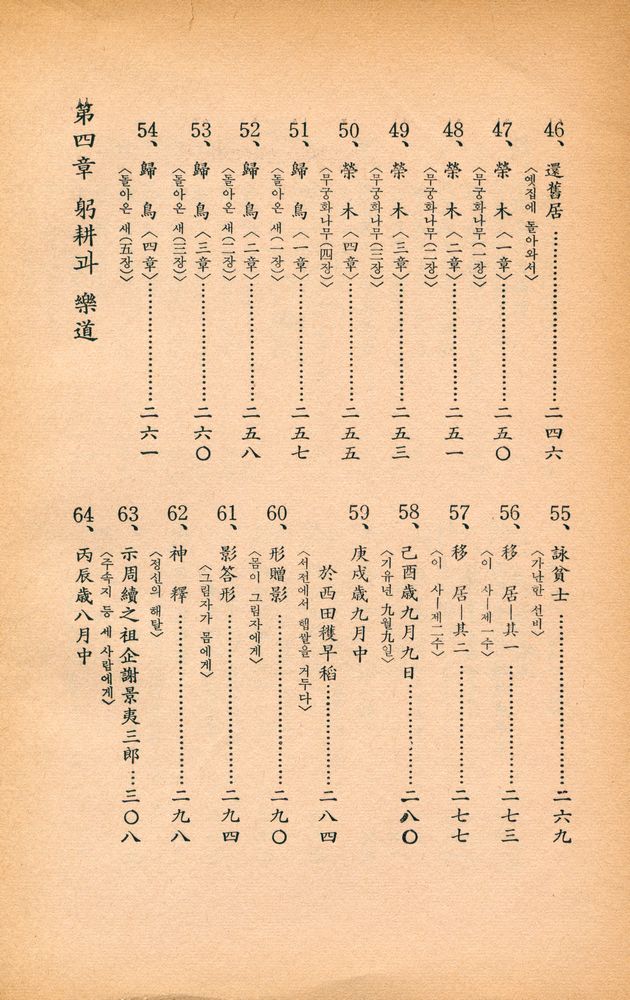 46、還舊居……二四六
〈옛집에 돌아와서〉
47、榮木〈一章〉……二五〇
〈무궁화나무(一장)〉
48、榮木〈二章〉……二五一
〈무궁화나무(二장)〉
49、榮木〈三章〉……二五三
〈무궁화나무(三장)〉
50、榮木〈四章〉……二五五
〈무궁화나무(四장)〉
51、歸鳥〈一章〉……二五七
〈돌아온 새(一장)〉
52、歸鳥〈二章〉……二五八
〈돌아온 새(二장)〉
53、歸鳥〈三章〉……二六〇
〈돌아온 새(三장)〉
54、歸鳥〈四章〉……二六一
〈돌아온 새(五장)〉
第四章 躬耕과 樂道
55、詠貧士……二六九
〈가난한 선비〉
56、移居—其一……二七三
〈이사—제一수〉
57、移居—其二……二七七
〈이사—제二수〉
58、己酉歲九月九日……二八〇
〈기유년 九월九일〉
59、庚戌歲九月中
於西田穫早稻……二八四
〈서전에서 햅쌀을 거두다〉
60、形贈影……二九〇
〈몸이 그림자에게〉
61、影答形……二九四
〈그림자가 몸에게〉
62、神釋……二九八
〈정신의 해탈〉
63、示周續之祖企謝景夷三郎…三〇八
〈주속지 등 세 사람에게〉
64、丙辰歲八月中